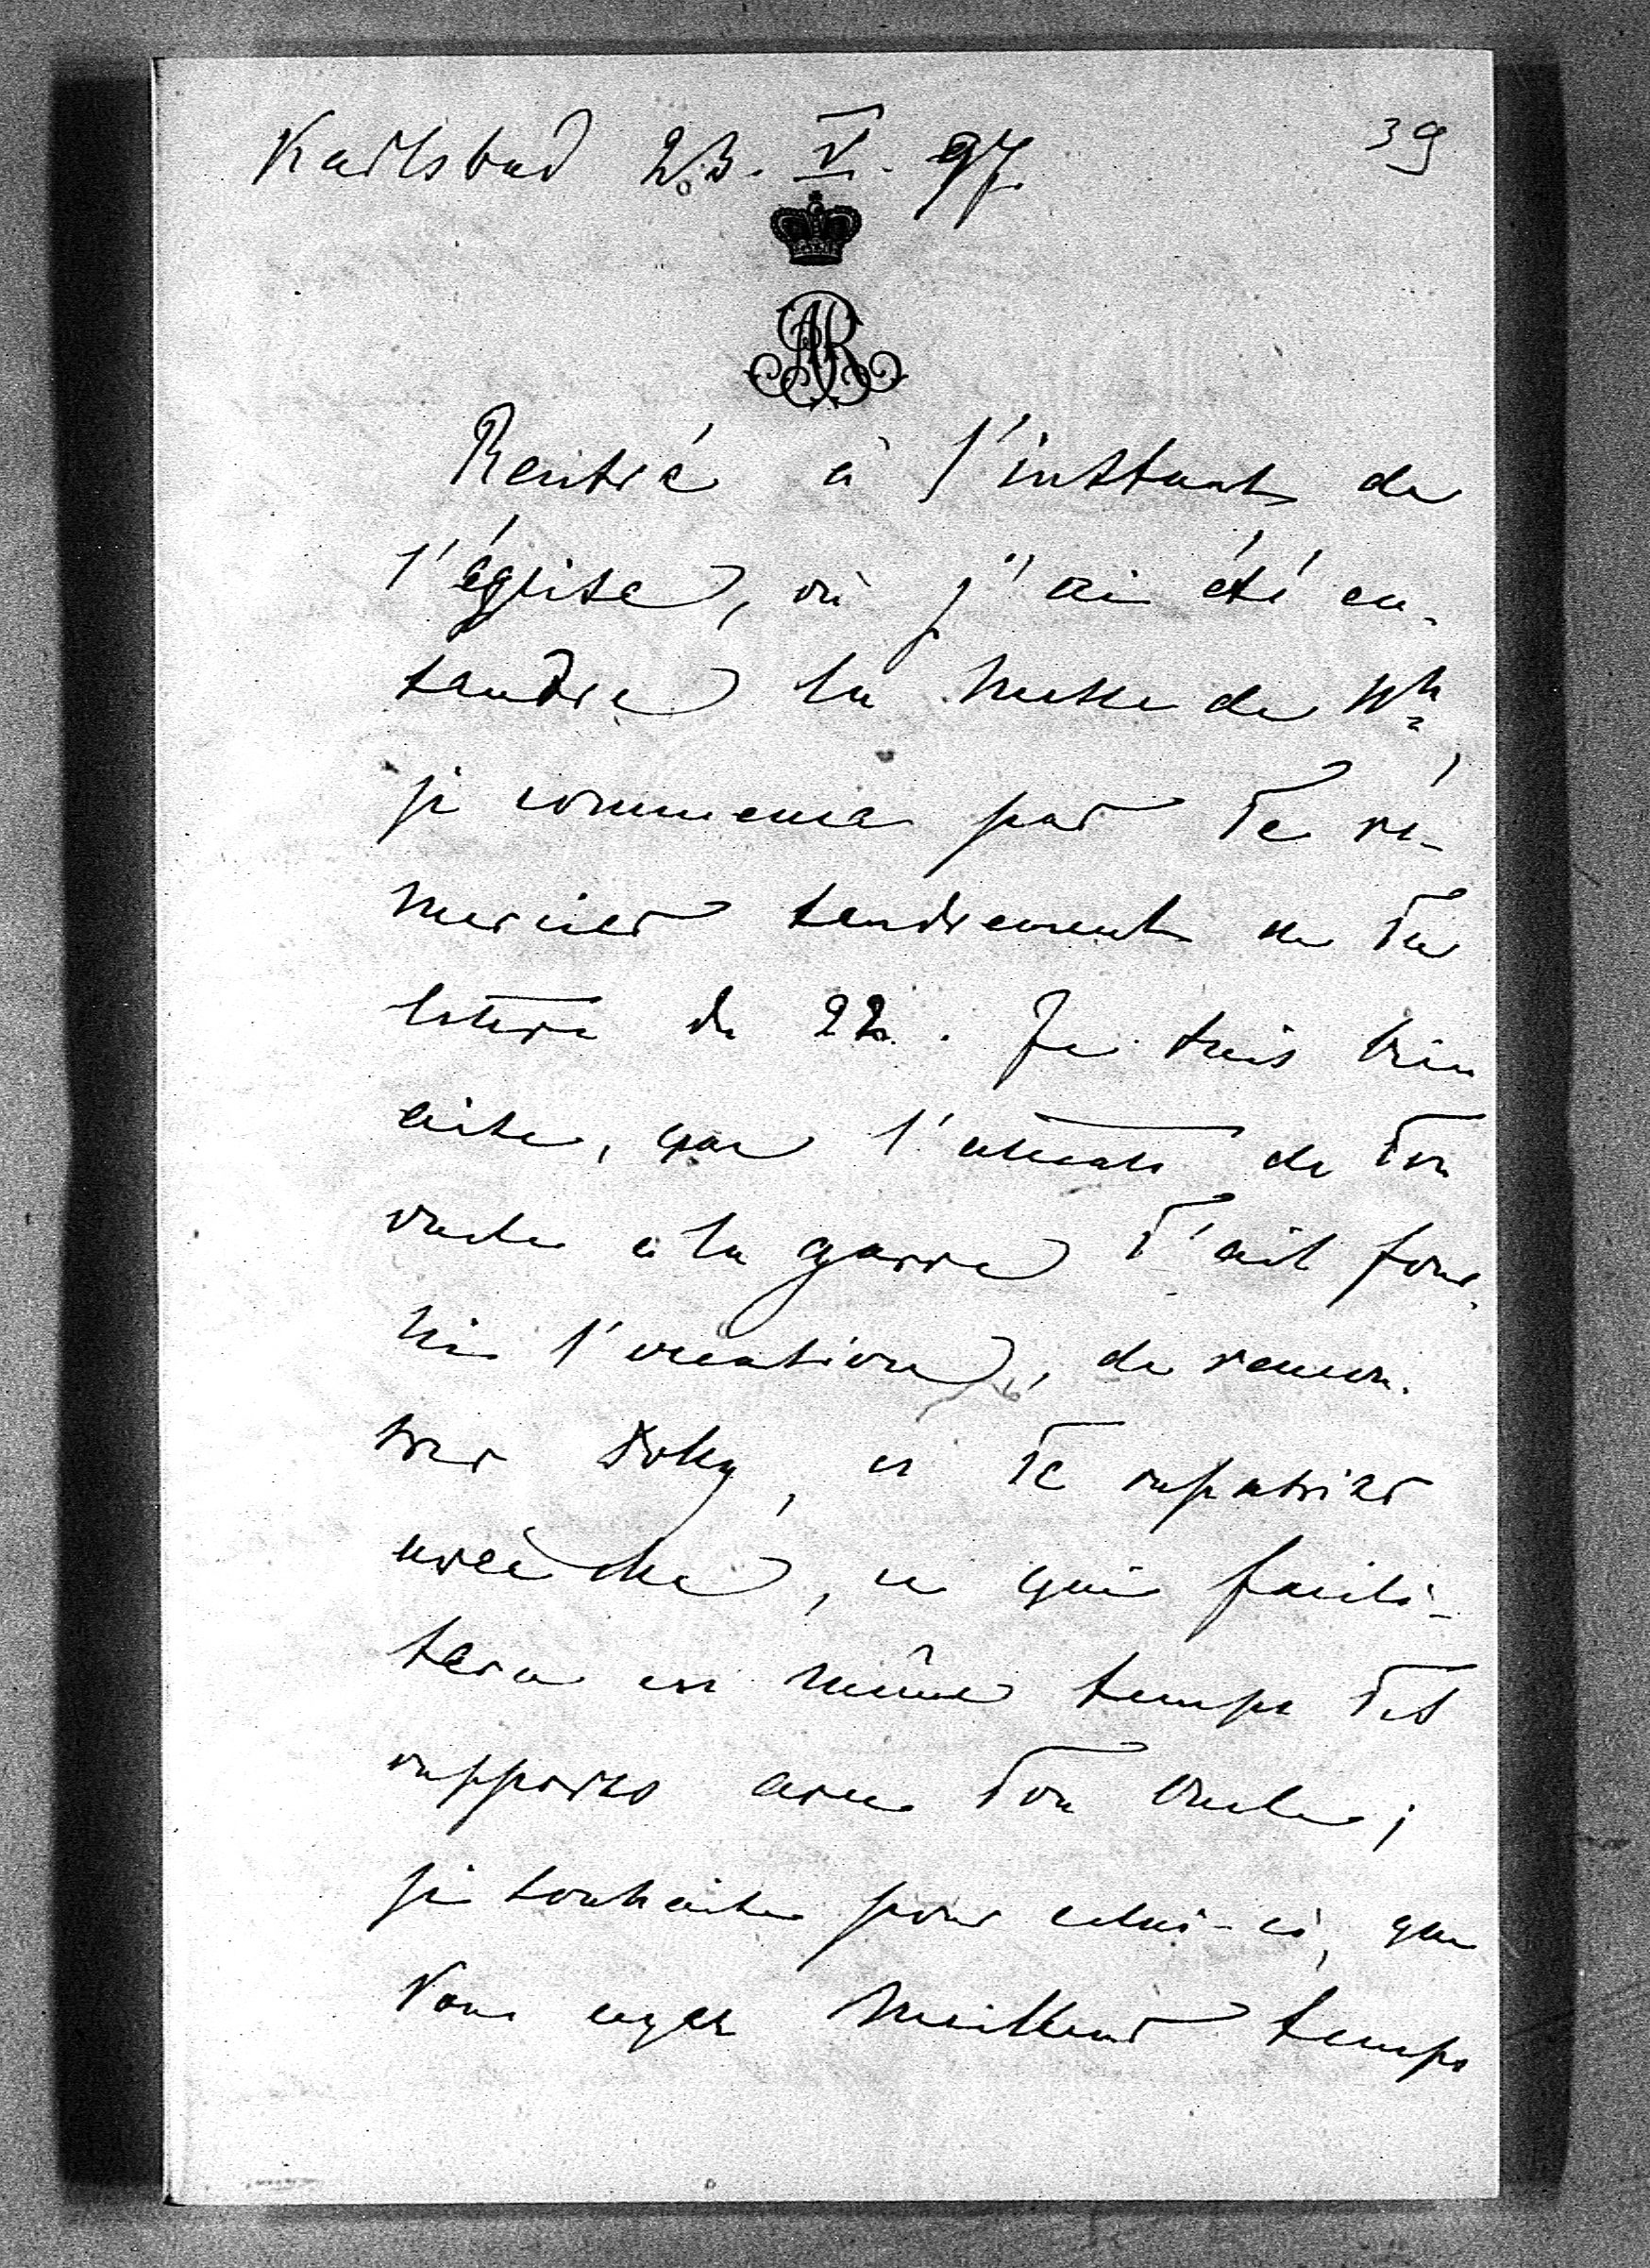 Karlsbad 23. V. 97.
39
AR
Rentré à l'instant de
l'église, où j'ai été en-
tendre la messe de 11h,
je commence par Te re-
mercier tendrement de Ta
lettre du 22. Je suis bien
aise, que l'attente de Ton
oncle à la garre T'ait four-
ni l'occasion, de rencon-
trer et Te rapatrier
avec elle, ce qui facili-
tera en même temps Tes
rapports avec Ton oncle;
je souhaite pour celui-ci, que
Vous ayez meilleur temps